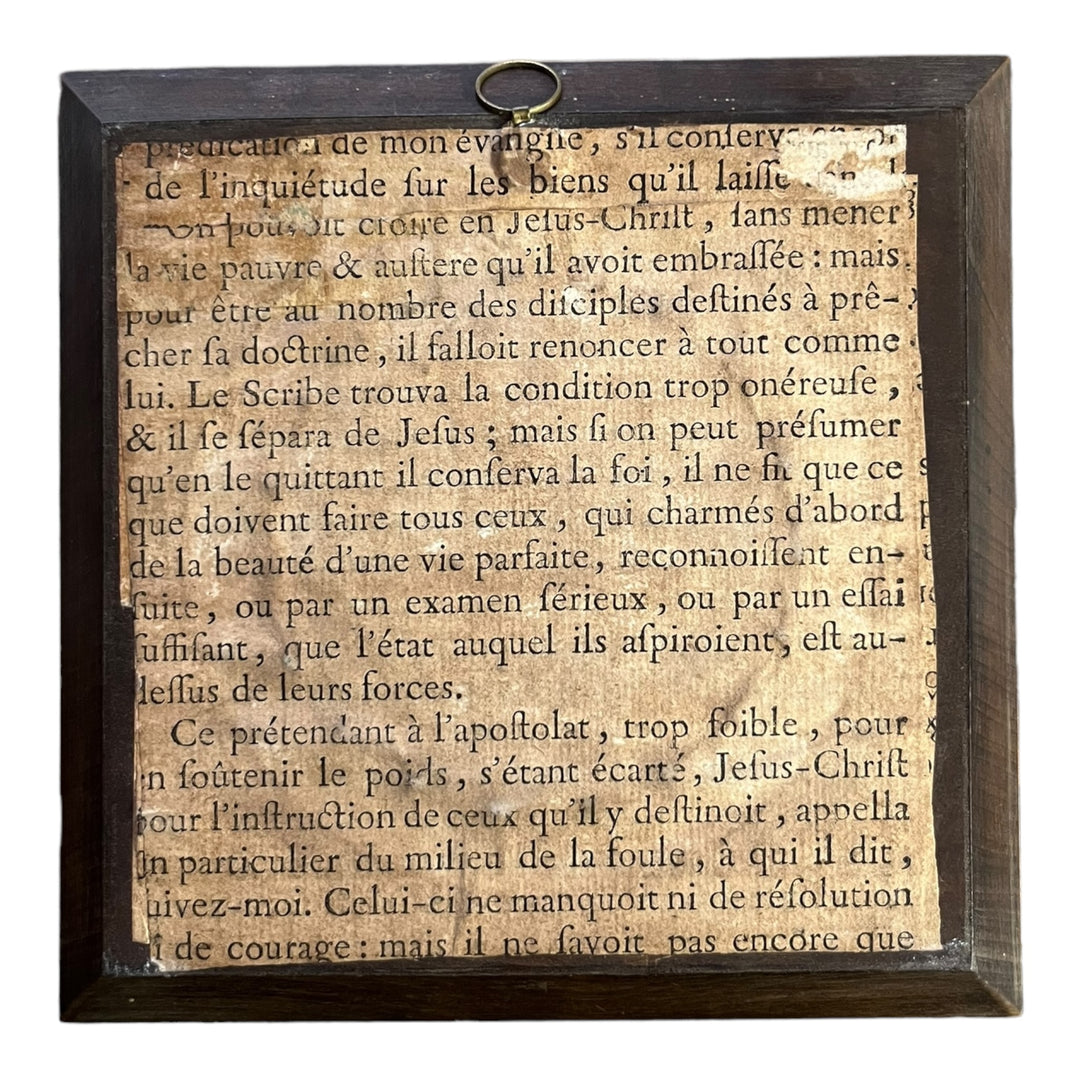 prédication de mon évangile, s'il conserve
de l'inquiétude ſur les biens qu'il laiſſe
pouvoit croire en Jeſus-Chriſt, ſans mener
la vie pauvre & auſtere qu'il avoit embraſſée : mais
pour être au nombre des diſciples deſtinés à prê-
cher ſa doctrine, il falloit renoncer à tout comme
lui. Le Scribe trouva la condition trop onéreuſe,
& il ſe ſépara de Jeſus ; mais ſi on peut préſumer
qu'en le quittant il conſerva la foi, il ne fit que ce
que doivent faire tous ceux, qui charmés d'abord
de la beauté d'une vie parfaite, reconnoiſſent en-
ſuite, ou par un examen ſérieux, ou par un eſſai
ſuffiſant, que l'état auquel ils aſpiroient, eſt au-
deſſus de leurs forces.
Ce prétendant à l'apoſtolat, trop foible, pour
en ſoûtenir le poids, s'étant écarté, Jeſus-Chriſt
pour l'inſtruction de ceux qu'il y deſtinoit, appella
un particulier du milieu de la foule, à qui il dit,
uivez-moi. Celui-ci ne manquoit ni de réſolution
i de courage : mais il ne ſavoit pas encore que